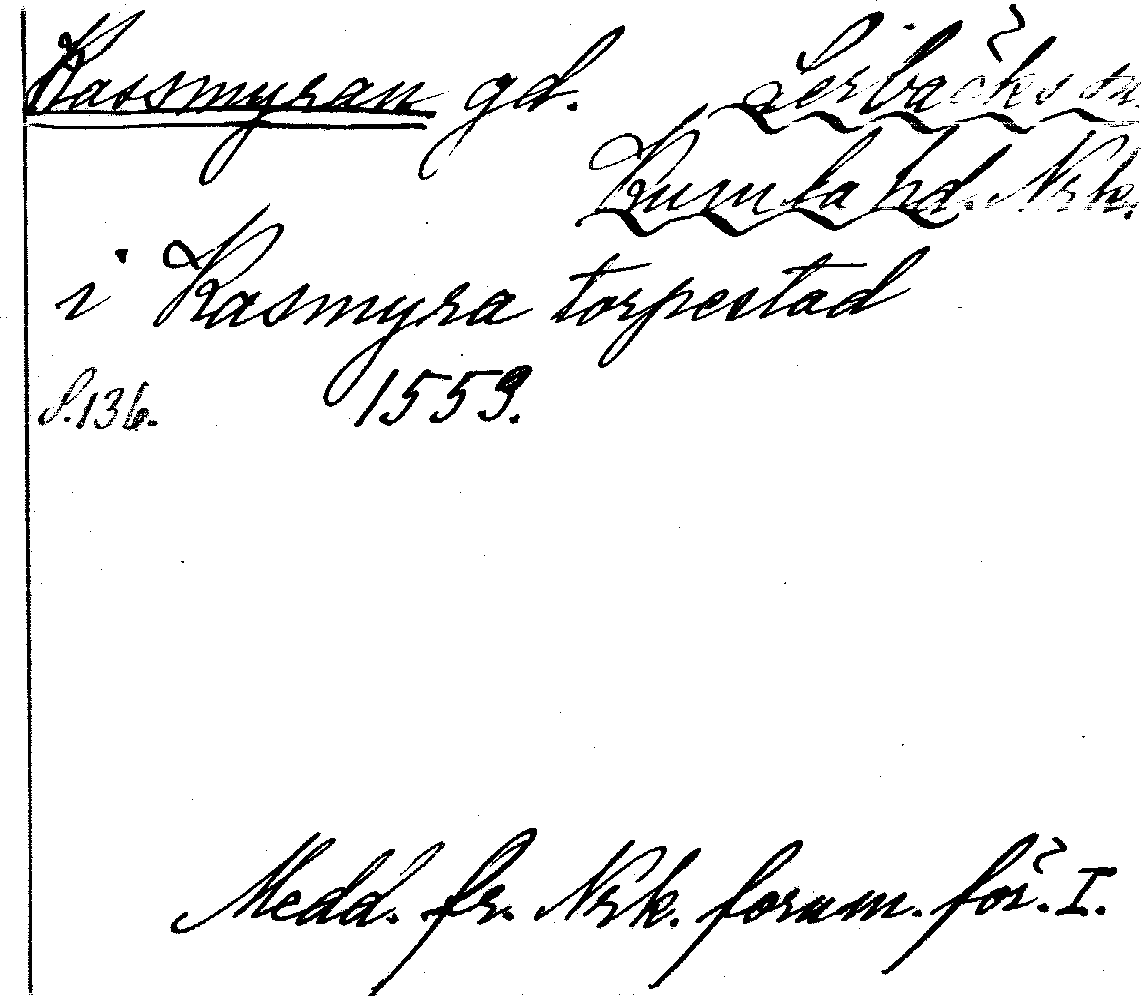 Kassmyran gd. Lerbäcks sn
Kumla hd. Nrk.
i Kasmyra torpestad
S. 136. 1559.
Medd. fr. Nrk. fornm. för. I.